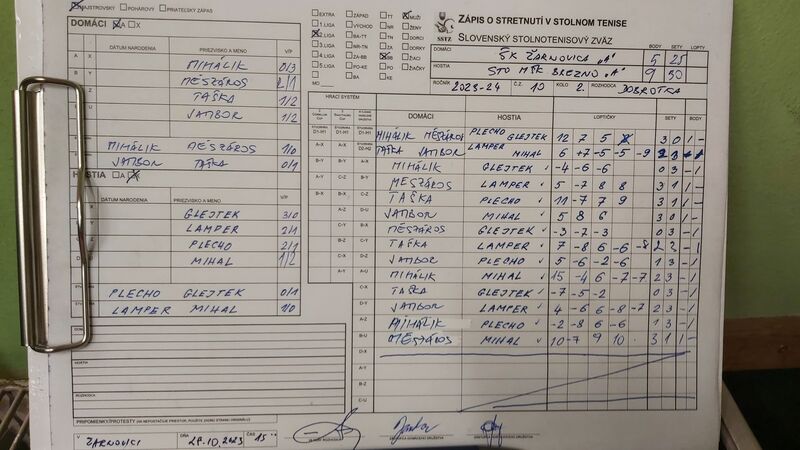 MAJSTROVSKÝ POHÁROVÝ PRIATEĽSKÝ ZÁPAS
DOMÁCI A X
DÁTUM NARODENIA PRIEZVISKO A MENO V/P
A X MIHÁLIK 0/3
B Y MÉSZÁROS 2/1
TAŠKA 1/2
JAMBOR 1/2
MIHÁLIK MÉSZÁROS 1/0
JAMBOR TAŠKA 0/1
HOSTIA A X
DÁTUM NARODENIA PRIEZVISKO A MENO V/P
GLEJTEK 3/0
LAMPER 2/1
PLECHO 2/1
MIHAL 1/2
PLECHO GLEJTEK 0/1
LAMPER MIHAL 1/0
HOSTIA
ROZHODCA
PRIPOMIENKY/PROTESTY (NA NEPOČAJTE PRIESTOR, POUŽITE ZADNÚ STRANU ORIGINÁLU)
V ŽARNOVICI DŇA 28.10.2023 ČAS 15
EXTRA ZÁPAD TT MUŽI
1.LIGA VÝCHOD NR ŽENY
2.LIGA BA-TT TN DORCI
3.LIGA NR-TN ZA DORKY
4.LIGA ZA-BB BB ŽIACI
5.LIGA PO-KE PO ŽIAČKY
MO BA KE
SSTZ
ZÁPIS O STRETNUTÍ V STOLNOM TENISE
SLOVENSKÝ STOLNOTENISOVÝ ZVÄZ
BODY SETY LOPTY
DOMÁCI ŠK ŽARNOVICA "A" 5 25
HOSTIA STO MŠK BREZNO "A" 9 30
ROČNÍK 2023-24 Č.Z. 10 KOLO 2. ROZHODCA DOBROTKA
HRACÍ SYSTÉM
DOMÁCI HOSTIA LOPTIČKY SETY BODY
MIHÁLIK MÉSZÁROS PLECHO GLEJTEK 12 7 5 3 0 1 -
TAŠKA JAMBOR LAMPER MIHAL 6 +7 -5 -5 -9 2 3 - 1
MIHÁLIK GLEJTEK -4 -6 -6 0 3 - 1
MÉSZÁROS LAMPER 5 -7 8 8 3 1 1 -
TAŠKA PLECHO 11 -7 7 9 3 1 1 -
JAMBOR MIHAL 5 8 6 3 0 1 -
MÉSZÁROS GLEJTEK -3 -7 -3 0 3 - 1
TAŠKA LAMPER 7 -8 6 -6 -8 2 3 - 1
JAMBOR PLECHO 5 -6 -2 -6 1 3 - 1
MIHÁLIK MIHAL 15 -4 6 -7 -7 2 3 - 1
TAŠKA GLEJTEK -7 -5 -2 0 3 - 1
JAMBOR LAMPER 4 -6 6 -8 -7 2 3 - 1
MIHÁLIK PLECHO -2 -8 6 -6 1 3 - 1
MÉSZÁROS MIHAL 10 -7 9 10 3 1 1 -
D-X
A-Y
B-Z
C-U